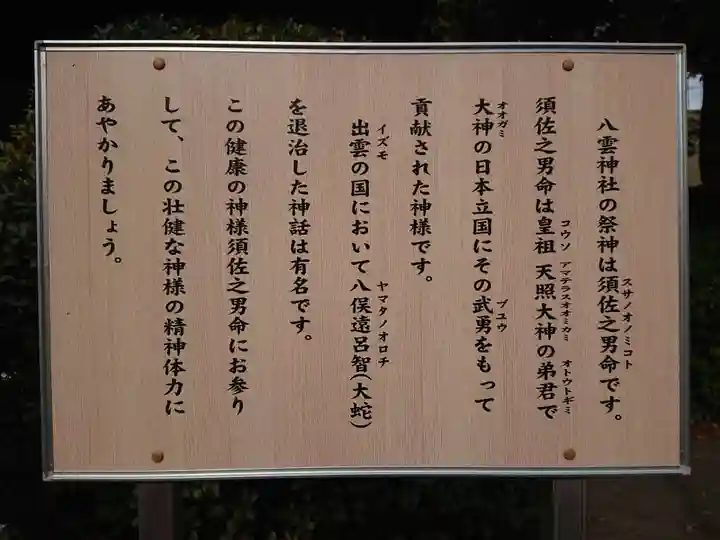 八雲神社の祭神は須佐之男命です。
スサノオノミコト
須佐之男命は皇祖 天照大神の弟君で
コウソ アマテラスオオミカミ オトウトギミ
大神の日本立国にその武勇をもって
オオガミ ブユウ
貢献された神様です。
出雲の国において八俣遠呂智(大蛇)
イズモ ヤマタノオロチ
を退治した神話は有名です。
この健康の神様須佐之男命にお参り
して、この壮健な神様の精神体力に
あやかりましょう。